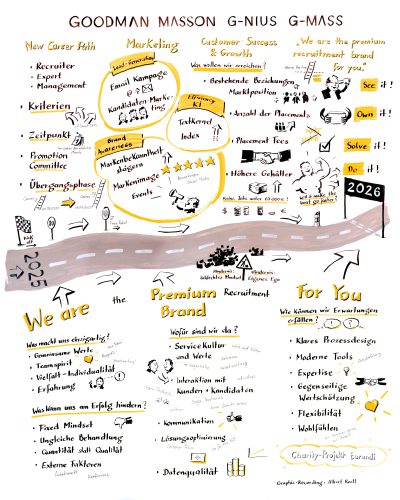 GOODMAN MASSON G-NIUS G-MASS
New Career Path
• Recruiter
• Expert
• Management
• Kriterien
• Zeitpunkt
• Promotion
Committee
• Übergangsphase
Marketing
Lead-Generation
Email Kampagne
Kandidaten-Marke-
ting
Efficiency
KI
TextKernel
Index
Brand
Awareness
Markenbekanntheit
steigern
Markenimage
Events
Customer Success
& Growth
Was wollen wir erreichen?
• Bestehende Beziehungen
Marktposition
• Anzahl der Placements
• Placement Fees
• Höhere Gehälter
„We are the premium
recruitment brand
for you"
See it!
Own it!
Solve it!
Do it!
2026
2025
Hindernis:
Schlechter Markt
Hindernis:
Eigenes Ego
We are the
Premium Recruitment
Brand
For You
Was macht uns einzigartig?
• Gemeinsame Werte
• Teamspirit
• Vielfalt - Individualität
• Erfahrung
Was kann uns am Erfolg hindern?
• Fixed Mindset
• Ungleiche Behandlung
• Quantität statt Qualität
• Externe Faktoren
Wofür sind wir da?
• Service Kultur
und Werte
• Interaktion mit
Kunden + Kandidaten
• Kommunikation
• Lösungsoptimierung
• Datenqualität
Wie können wir Erwartungen
erfüllen?
• Klares Prozessdesign
• Moderne Tools
• Expertise
• Gegenseitige
Wertschätzung
• Flexibilität
• Wohlfühlen
Charity-Projekt Burundi
Graphic-Recording